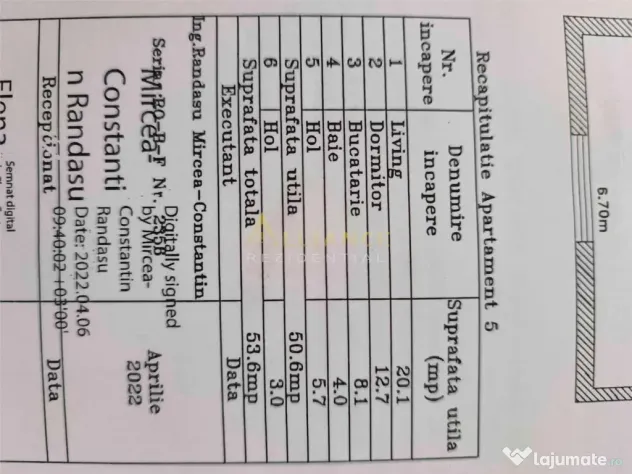 6.70m
Recapitulatie Apartament 5
Nr. incapere Denumire incapere Suprafata utila (mp)
1 Living 20.1
2 Dormitor 12.7
3 Bucatarie 8.1
4 Baie 4.0
5 Hol 5.7
Suprafata utila 50.6mp
6 Hol 3.0
Suprafata totala 53.6mp
Executant Data
Ing.Randasu Mircea-Constantin
Aprilie
2022
Mircea
Constanti
n Randasu
Digitally signed
by Mircea-
Constantin
Randasu
Date: 2022.04.06
09:40:02 +03'00'
Receptionat Data
Semnat digital
REZIDENTIAL
lajumate.ro